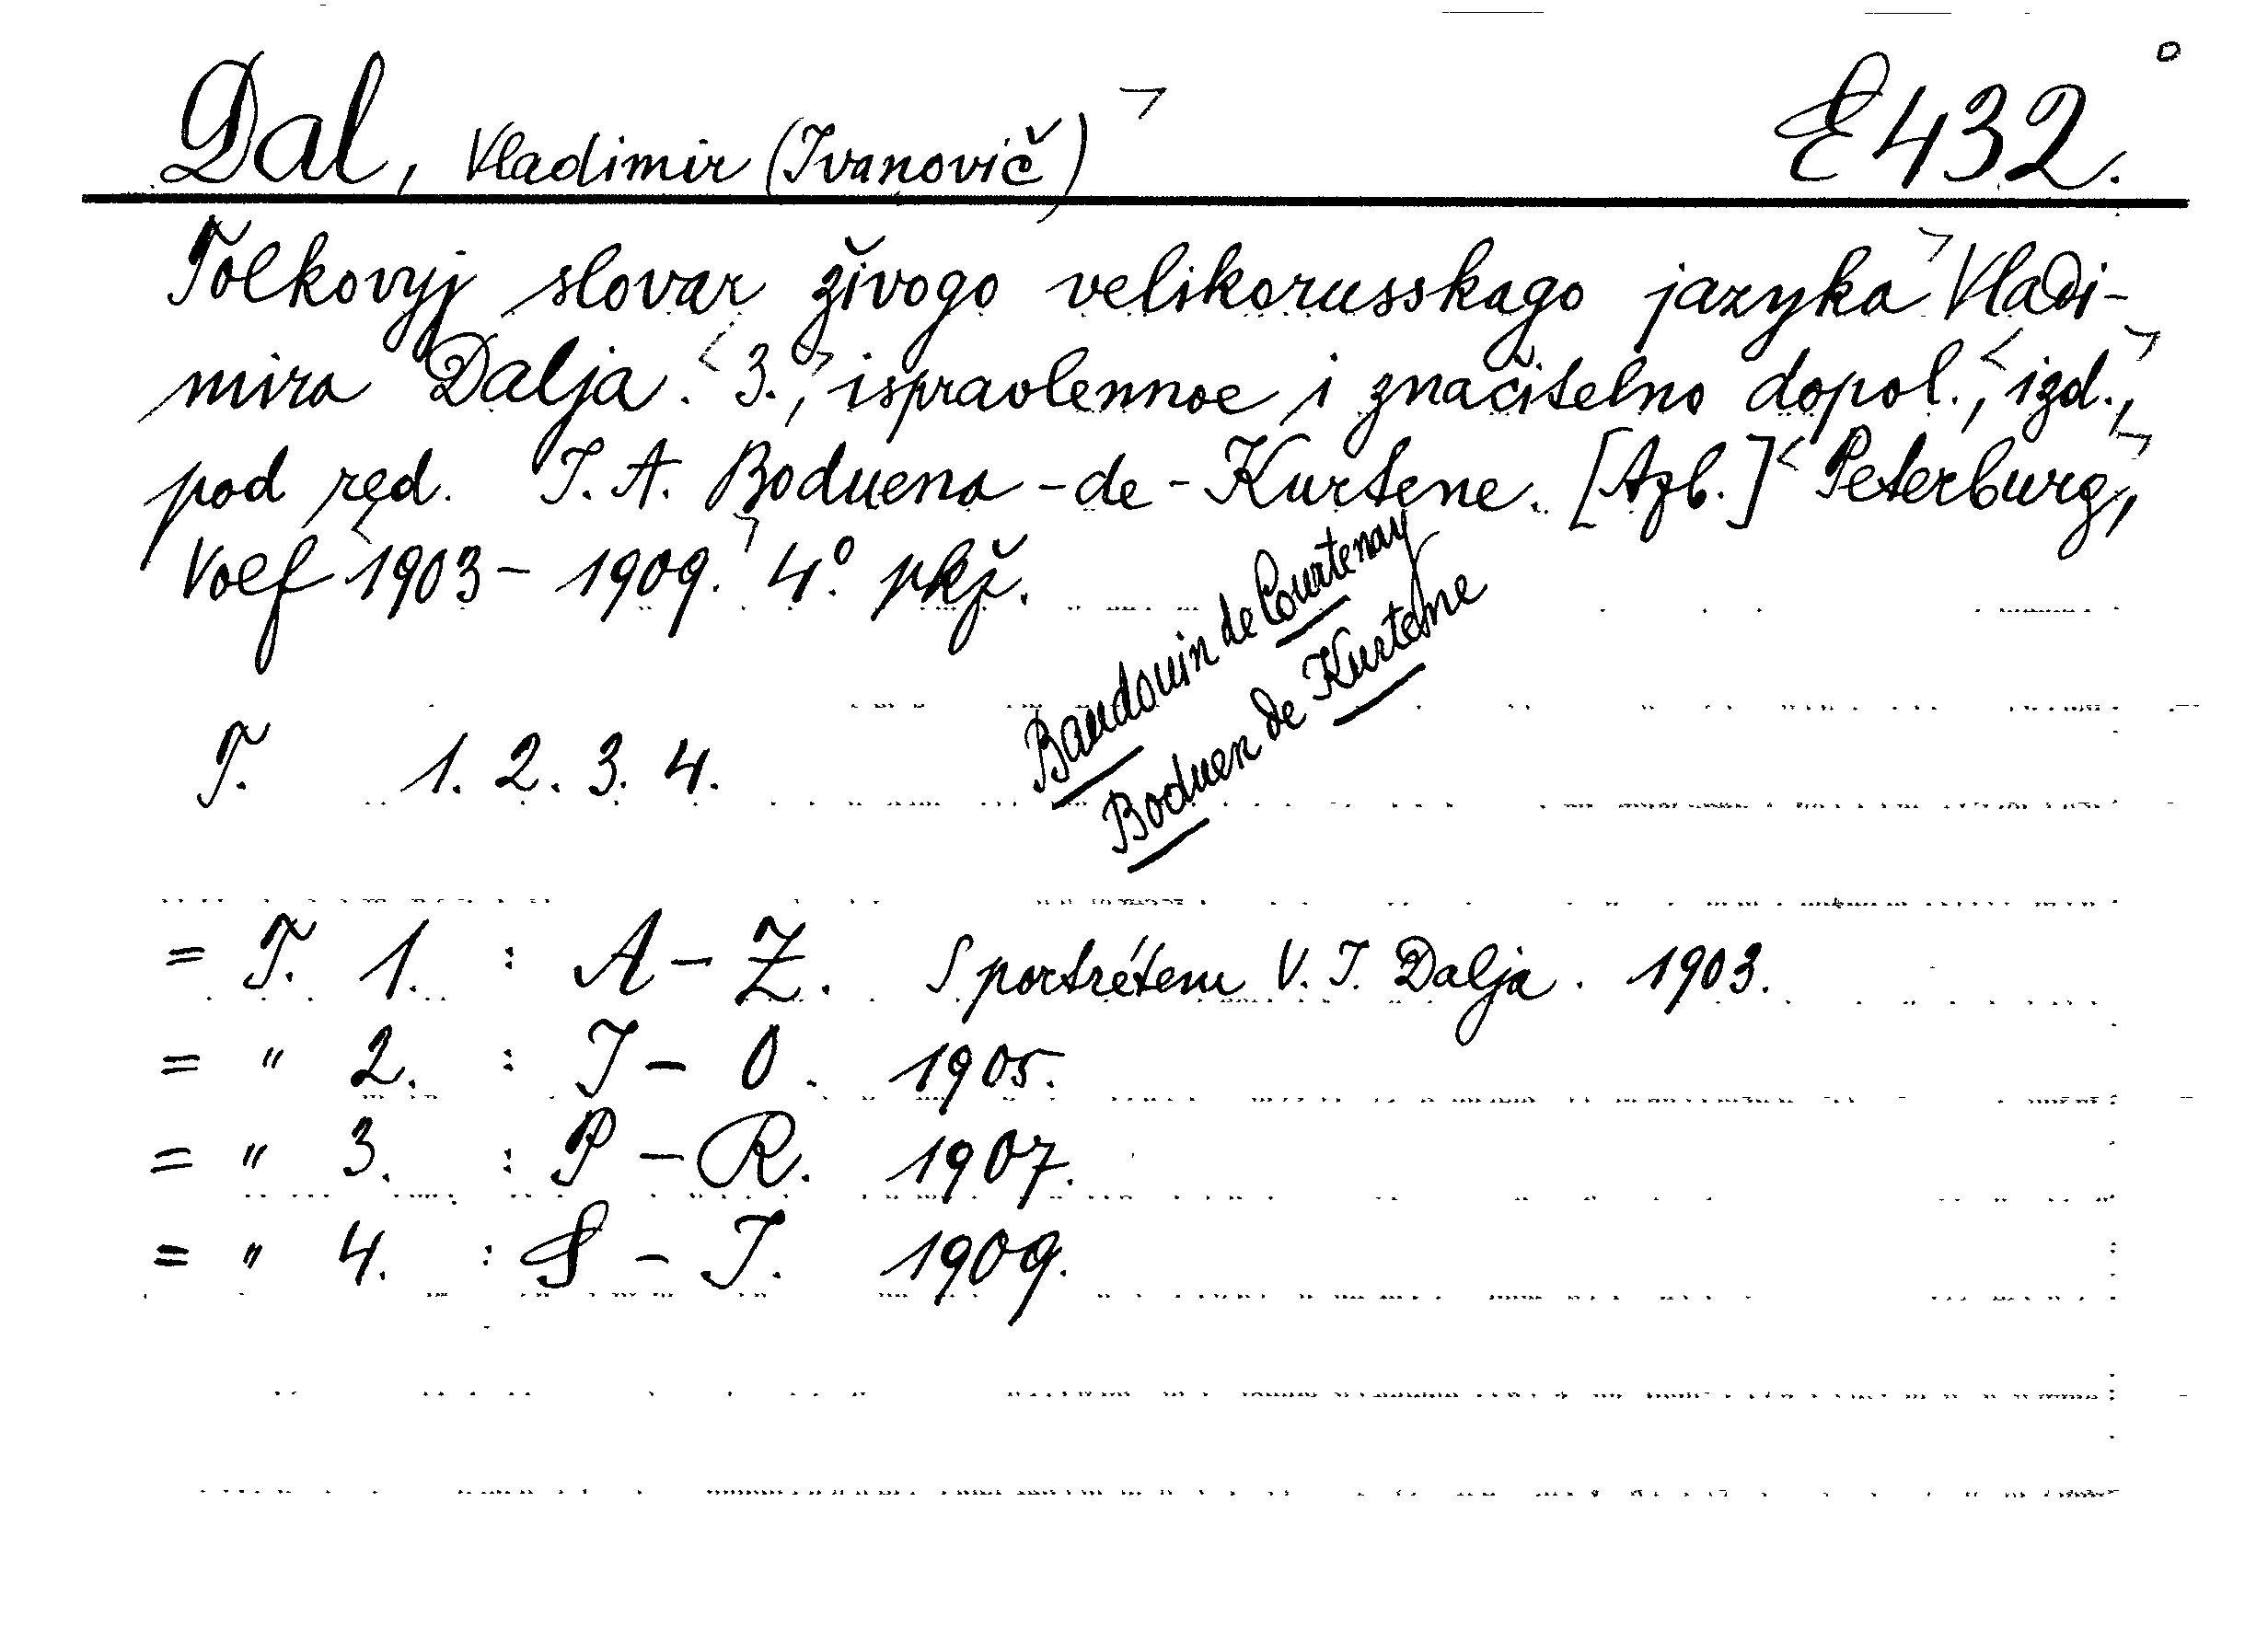 Dal, Vladimir (Ivanovič) E 432.
Tolkovyj slovar živogo velikorusskago jazyka Vladi-
mira Dalja. 3., ispravlennoe i značitelno dopol., izd.,
pod red. I. A. Boduena-de-Kurtene. [Azb.] Peterburg,
Volf 1903-1909. 4° pkž.
Baudouin de Courtenay
Boduen de Kurtene
T. 1. 2. 3. 4.
= T. 1. : A-Z. S portrétem V. I. Dalja. 1903.
= " 2. : I-O. 1905.
= " 3. : P-R. 1907.
= " 4. : S-I. 1909.